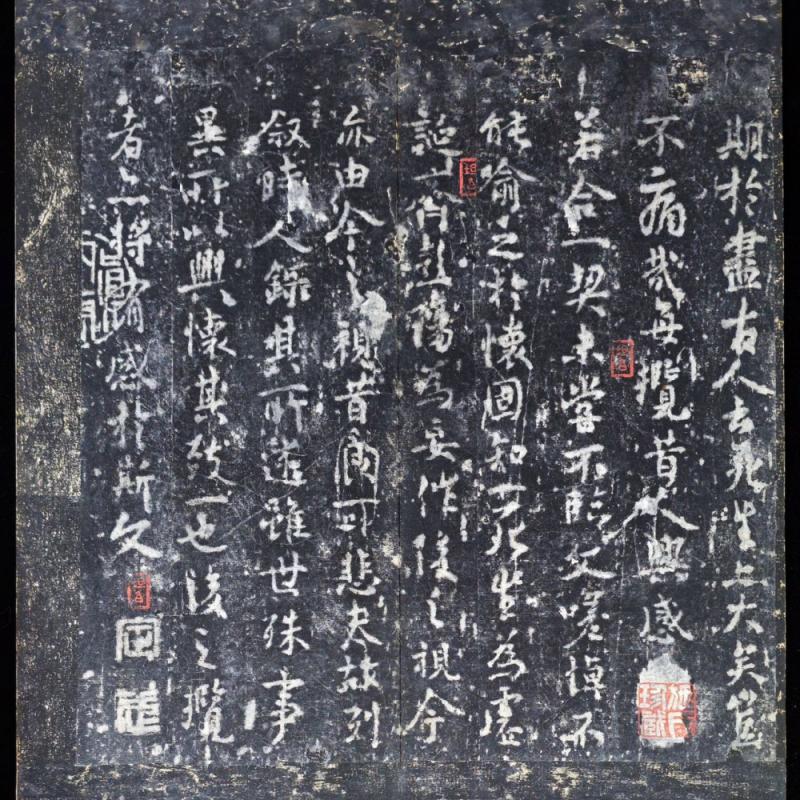 期於盡古人云死生亦大矣豈
不痛哉每攬昔人興感
若合一契未嘗不臨文嗟悼不
能喻之於懷固知一死生為虛
誕齊彭殤為妄作後之視今
亦由今之視昔悲夫故列
叙時人錄其所述雖世殊事
異所以興懷其致一也後之攬
者亦將有感於斯文